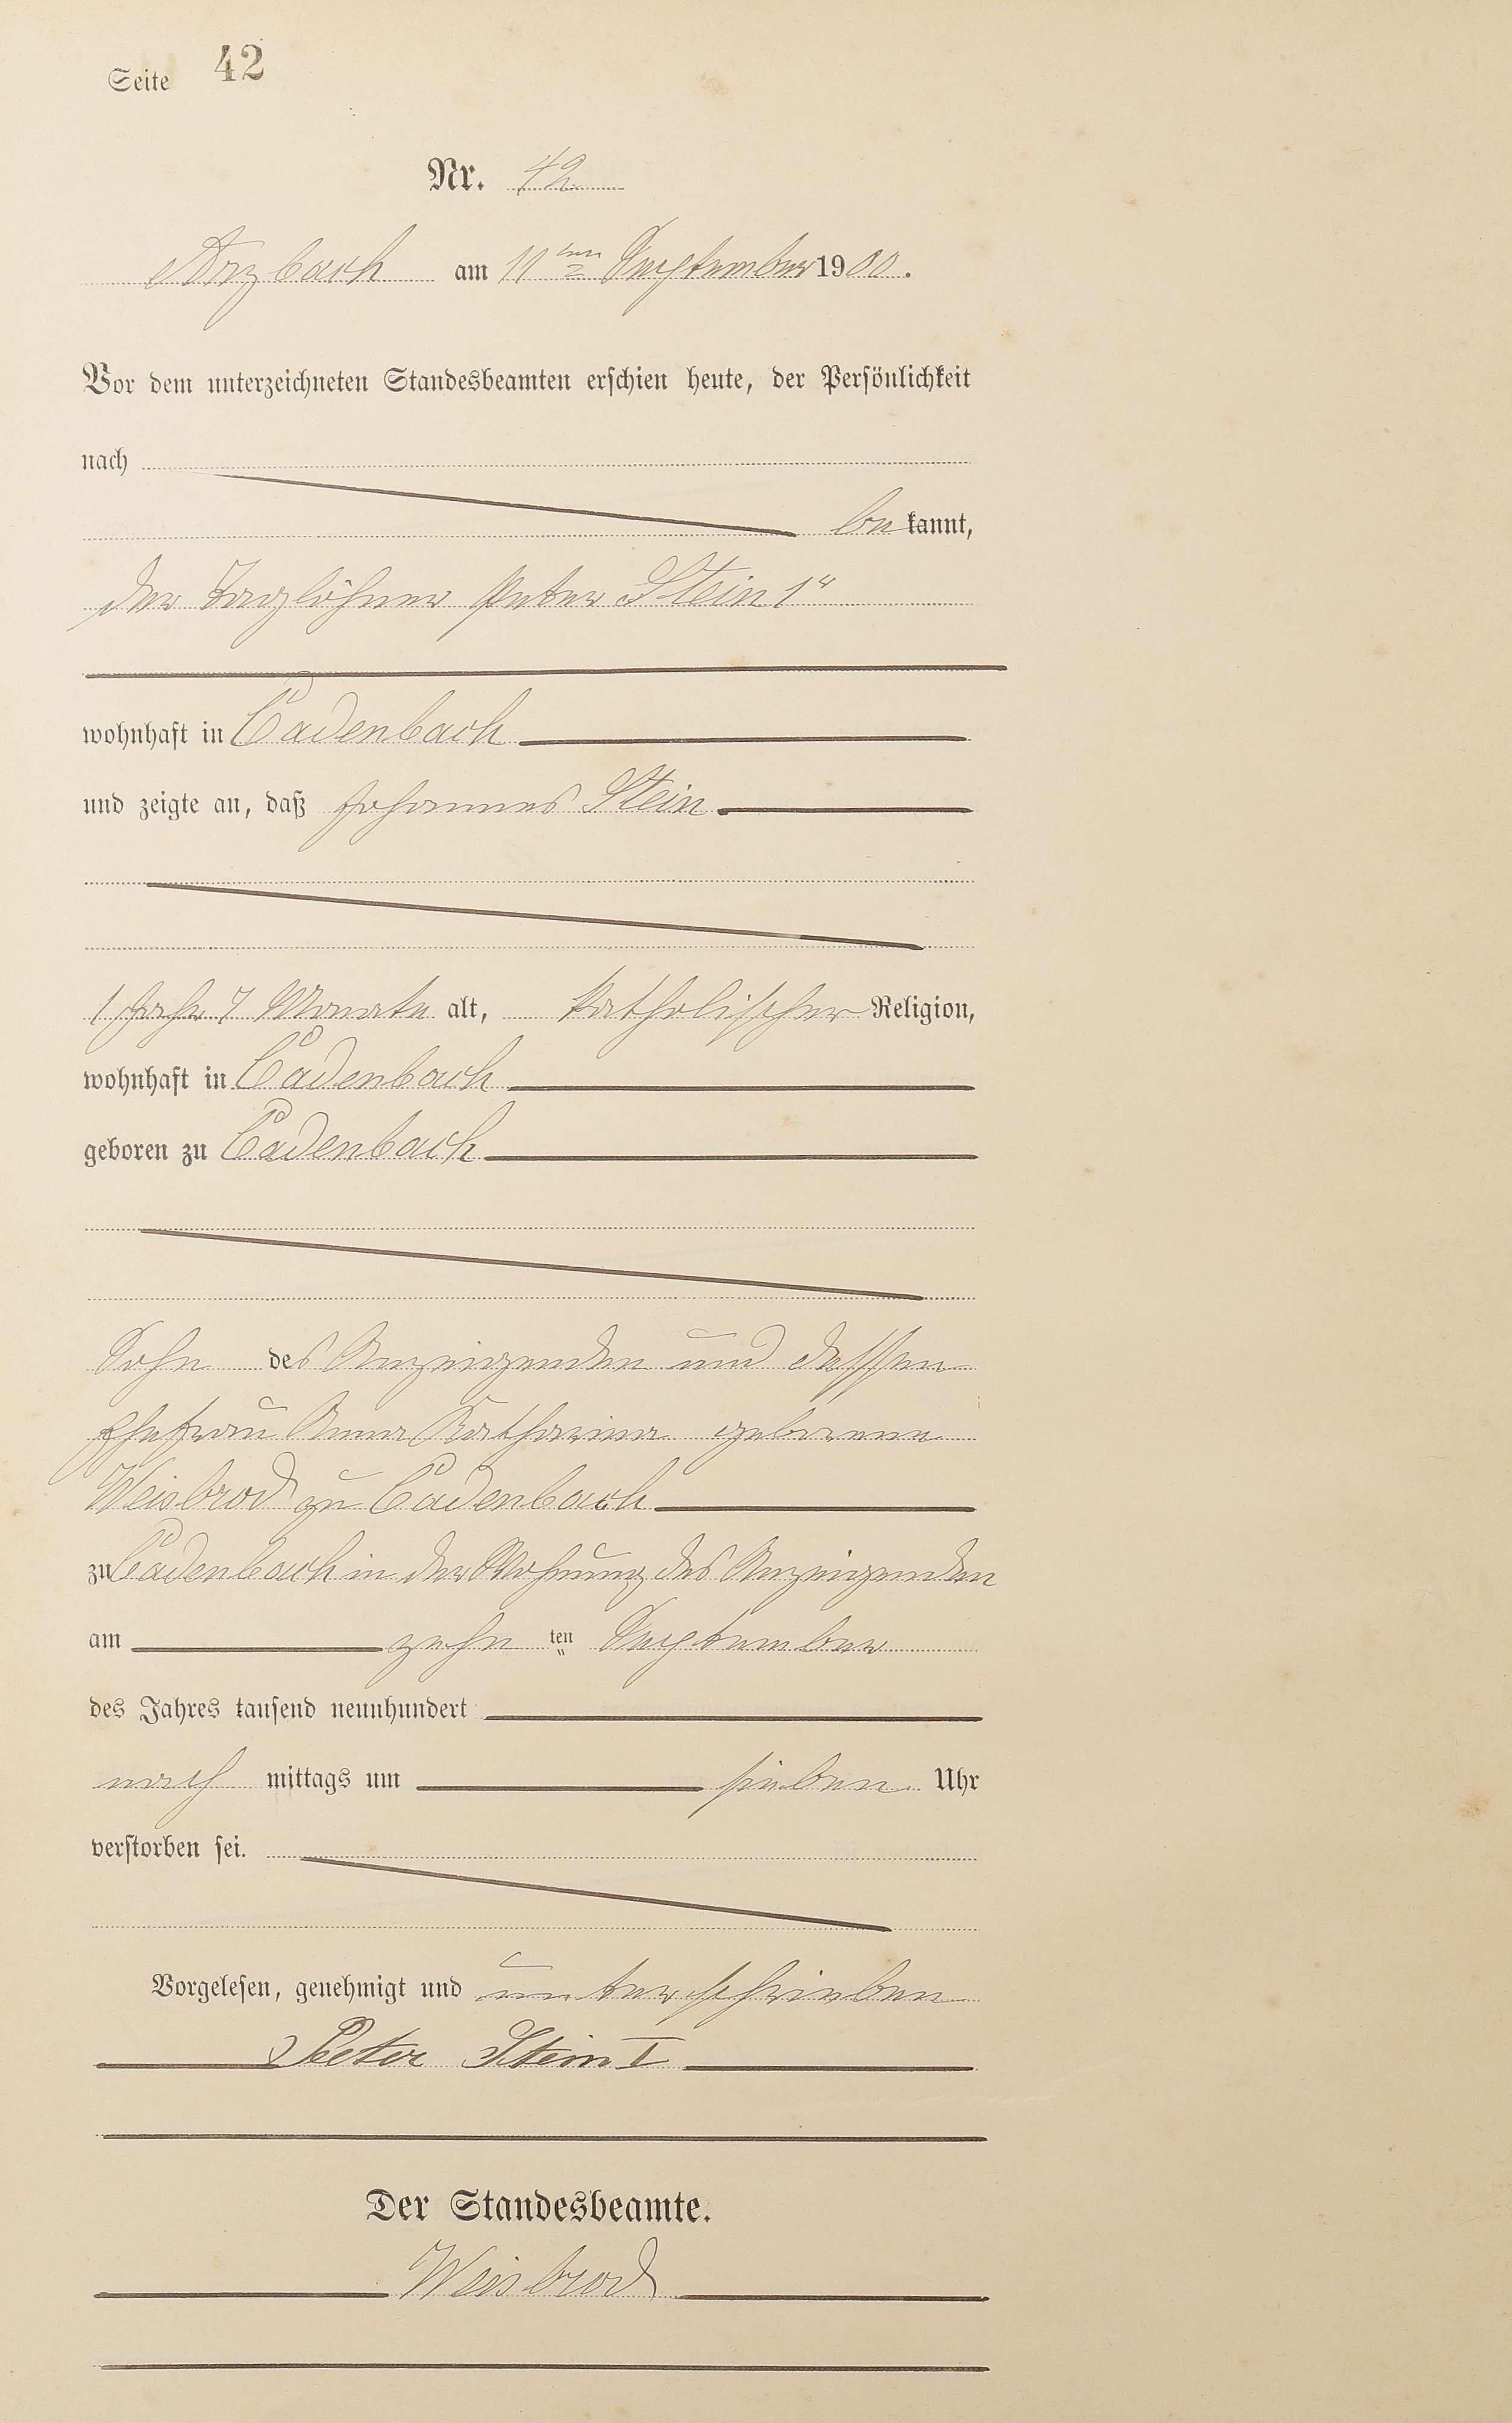 Seite 42
Nr. 42
Arzbach am 11ten September 1900.
Vor dem unterzeichneten Standesbeamten erschien heute, der Persönlichkeit
nach
bekannt,
der Taglöhner Peter Stein 1r
wohnhaft in Cadenbach
und zeigte an, daß Johannes Stein
1 Jahr 7 Monate alt, katholischer Religion,
wohnhaft in Cadenbach
geboren zu Cadenbach
Sohn des Anzeigenden und dessen
Ehefrau Anna Katharina geborene
Weisbrod zu Cadenbach
zu Cadenbach in der Wohnung des Anzeigenden
am zehn ten September
des Jahres tausend neunhundert
nach mittags um sieben Uhr
verstorben sei.
Vorgelesen, genehmigt und unterschrieben
Peter Stein I
Der Standesbeamte.
Weisbrod